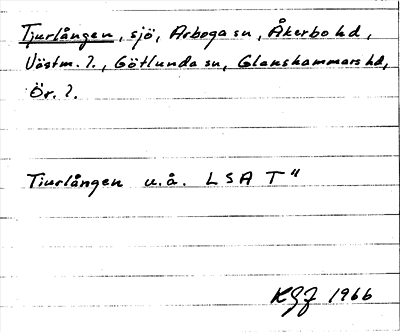 Tjurlången, sjö, Arboga sn, Åkerbo hd,
Västm. l., Götlunda sn, Glanshammars hd,
Ör. l.
Tiurlången u.å. LSA T"
KGF 1966